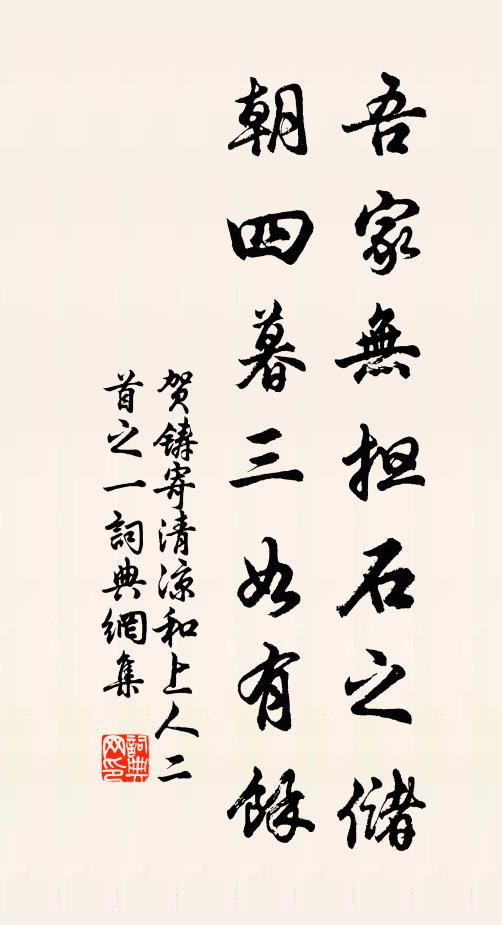 吾家無担石之儲
朝四暮三如有餘
賀鑄寄清涼和上人二
首之一詞典網集
詞典
网印